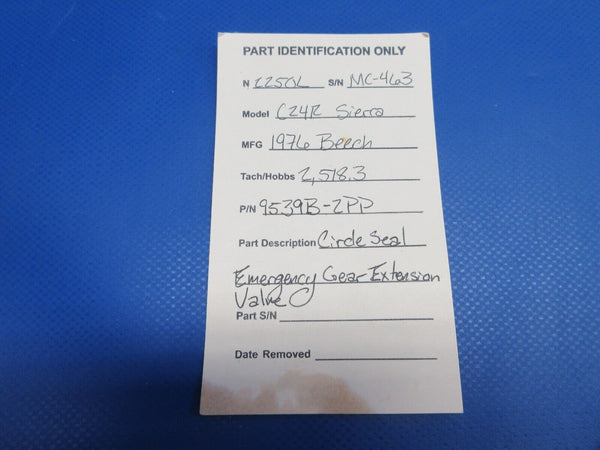 PART IDENTIFICATION ONLY
N 2250L S/N MC-463
Model C24R Sierra
MFG 1976 Beech
Tach/Hobbs 2,518.3
P/N 9539B-2PP
Part Description Circle Seal
Emergency Gear Extension
Valve
Part S/N
Date Removed